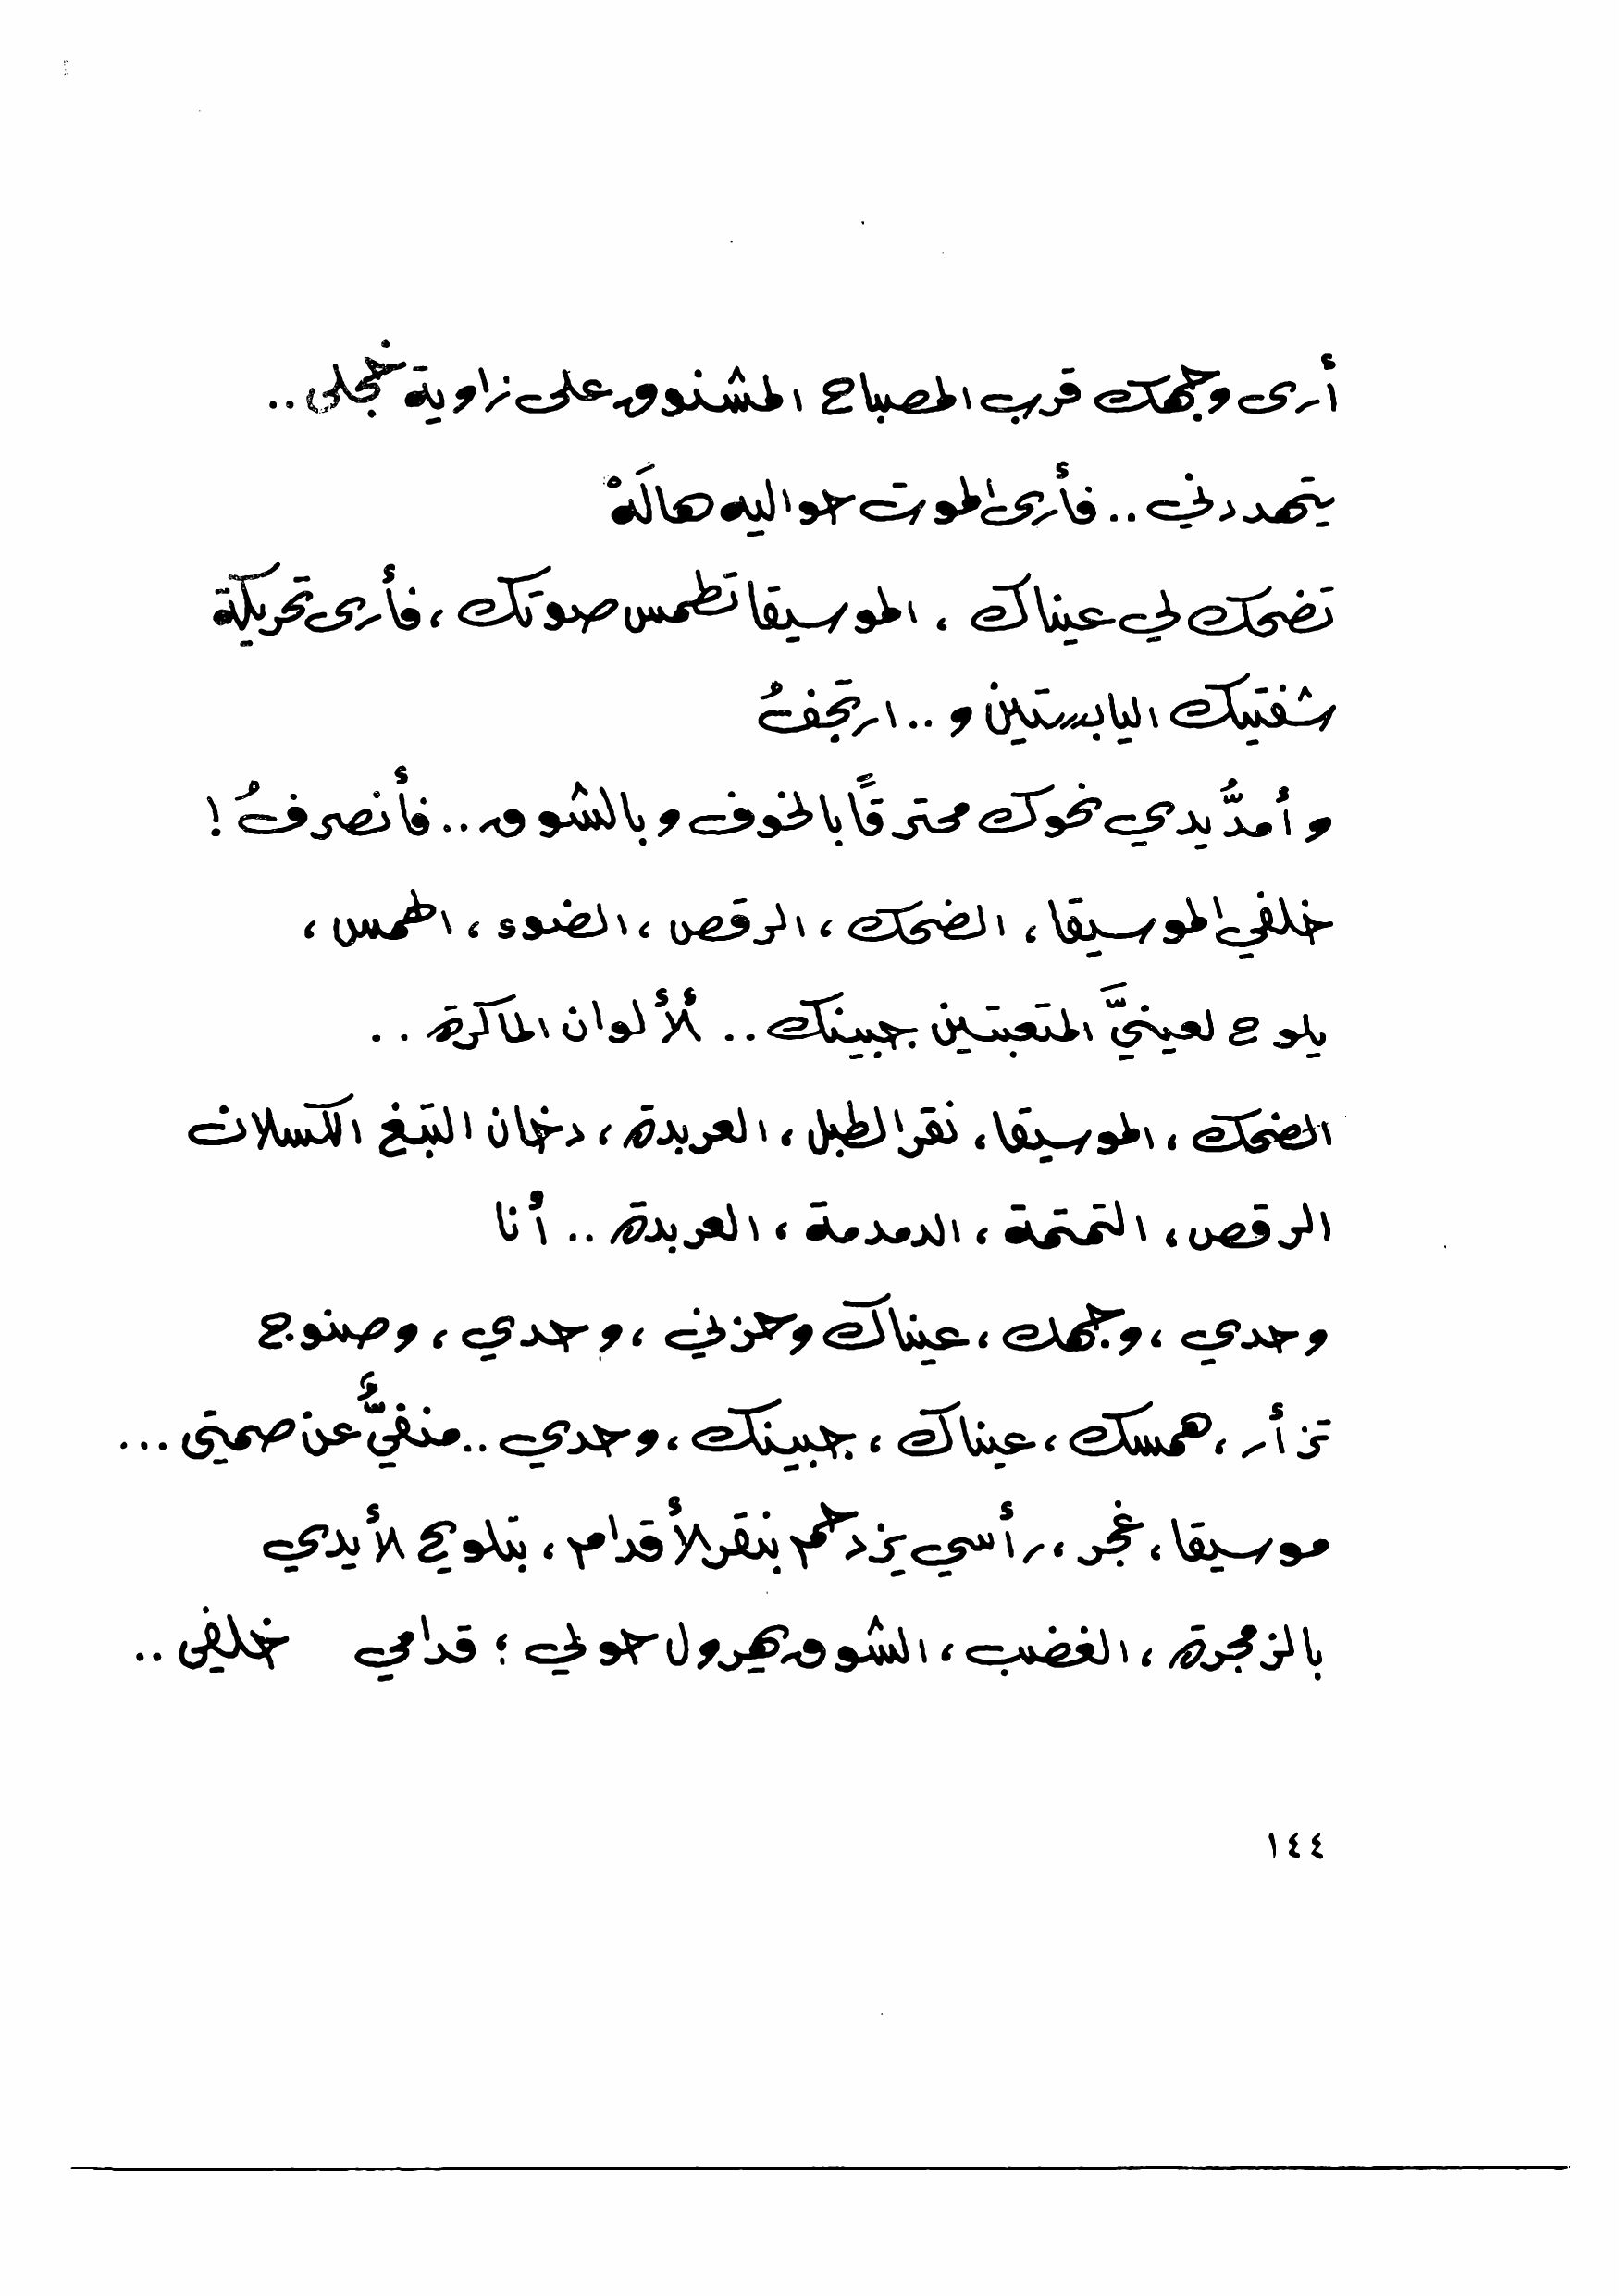 أرى وجهك قرب المصباح المشنوق على زاوية خجلى..
يتهددني .. فأرى الموت حواليه هالَهْ
تضحك لي عيناك ، الموسيقا تطمس صوتك ، فأرى تحريكة
شفتيك اليابستين و .. ارتجفُ
و أمدُّ يدي نحوك محترقًا بالخوف وبالشوق .. فأنصرفُ !
خلفي الموسيقا ، الضحك ، الرقص ، الضوء ، الهمس ،
يلوح لعينيَّ المتعبتين جبينك .. ألألوان الماكرة ..
الضحك ، الموسيقا ، نقر الطبل ، العربدة ، دخان التبغ الكسلان
الرقص ، التمتمة ، الدمدمة ، العربدة .. أنا
وحدي ، وجهك ، عيناك وحزني ، وحدي ، وصنوج
تزأر ، همسك ، عيناك ، جبينك ، وحدي .. منفيٌّ عن صمتي ...
موسيقا ، غجر ، رأسي يزدحم بنقر الأقدام ، بتلويح الأيدي
بالزمجرة ، الغضب ، الشوق يهرول حولي ؛ قدامي خلفي ..
١٤٤